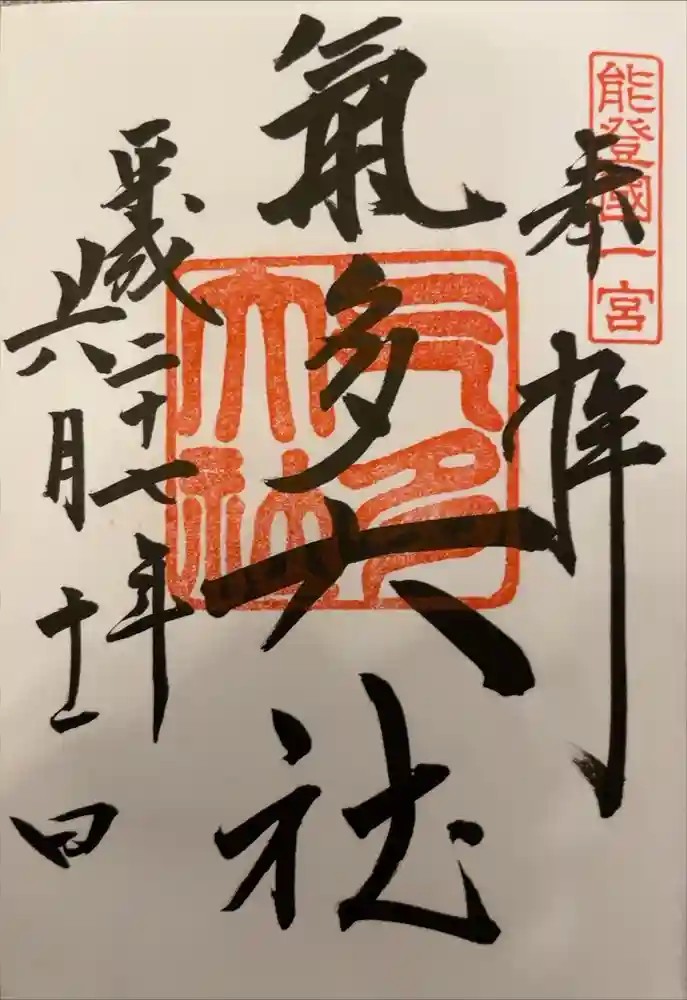 能登國一宮
奉拝
氣多大社
气多
大社
平成二十七年
六月十一日